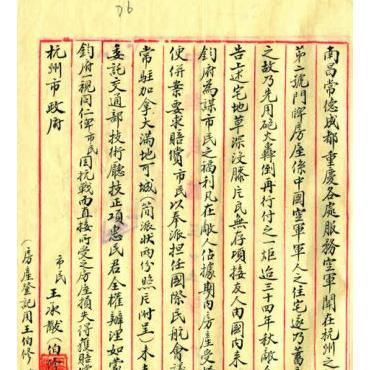 南昌常德成都重慶各處服務空軍聞在杭州之
第二號門牌房屋係中國空軍軍人之住宅遂乃蓄
之故乃先用砲火轟倒再行付之一炬迨三十四年秋敵人
告上述宅地草深沒膝片瓦無存項接友人由國内來
鈞府為謀市民之福利凡在敵人佔據期内房產受
便併案要求賠償市民以奉派担任國際民航會議
常駐加拿大滿地可城(簡派狀兩份照片附呈)未
委託交通部技術廳技正項忠民君全權辦理如蒙
鈞府一視同仁俾市民因抗戰而直接所受之房產損失得獲賠
杭州市政府
市民 王冰 伯修
(房產登記用王伯修